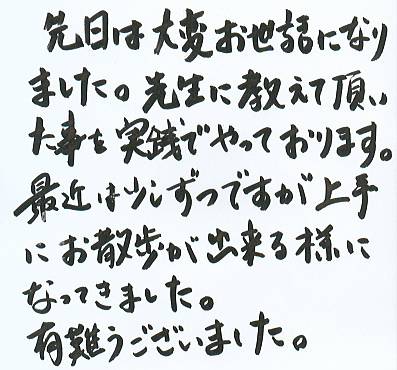 先日は大変お世話になり
ました。先生に教えて頂い
た事を実践でやっております。
最近は少しずつですが上手
にお散歩が出来る様に
なってきました。
有難うございました。